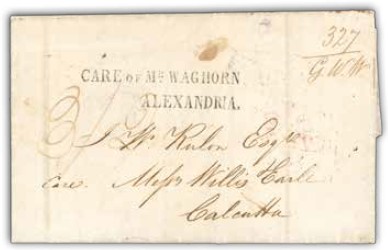 327
G.W.W
CARE OF Mr WAGHORN
ALEXANDRIA.
3/
J Wm Esqre
Care Messrs Willis Earle
Calcutta